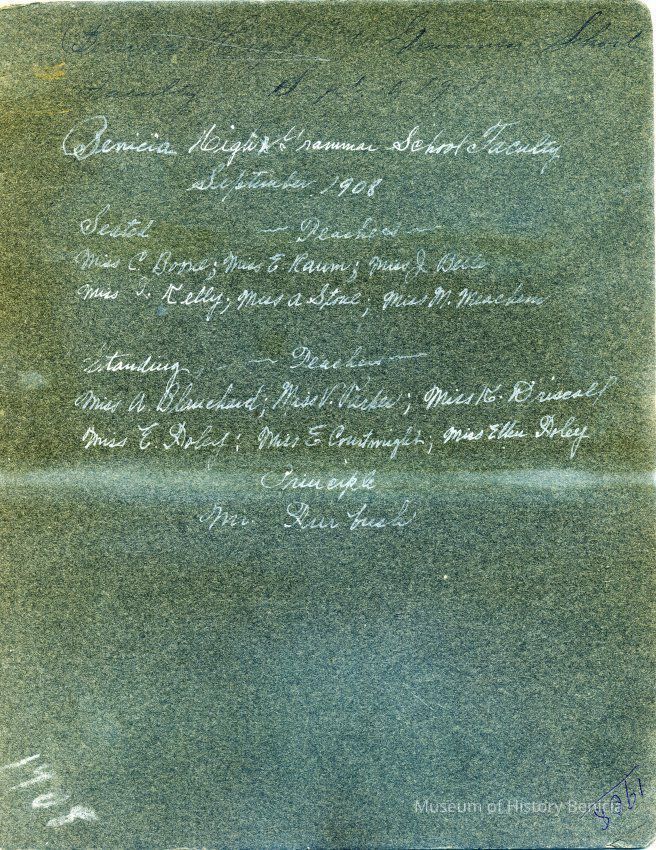 Grammar School
Benicia High & Grammar School Faculty
September 1908
Seated — Teachers —
Miss C. Boone; Miss E. Raum; Miss J. Beile
Miss Kelly; Miss A Stone; Miss M. Meachem
Standing, — Teachers —
Miss A. Blanchard; Miss V. Parker; Miss K. Driscoll
Miss C. Foley; Miss E. Courtwright; Miss Ellen Foley
Principle
Mr.
1908
Museum of History Benicia
1908